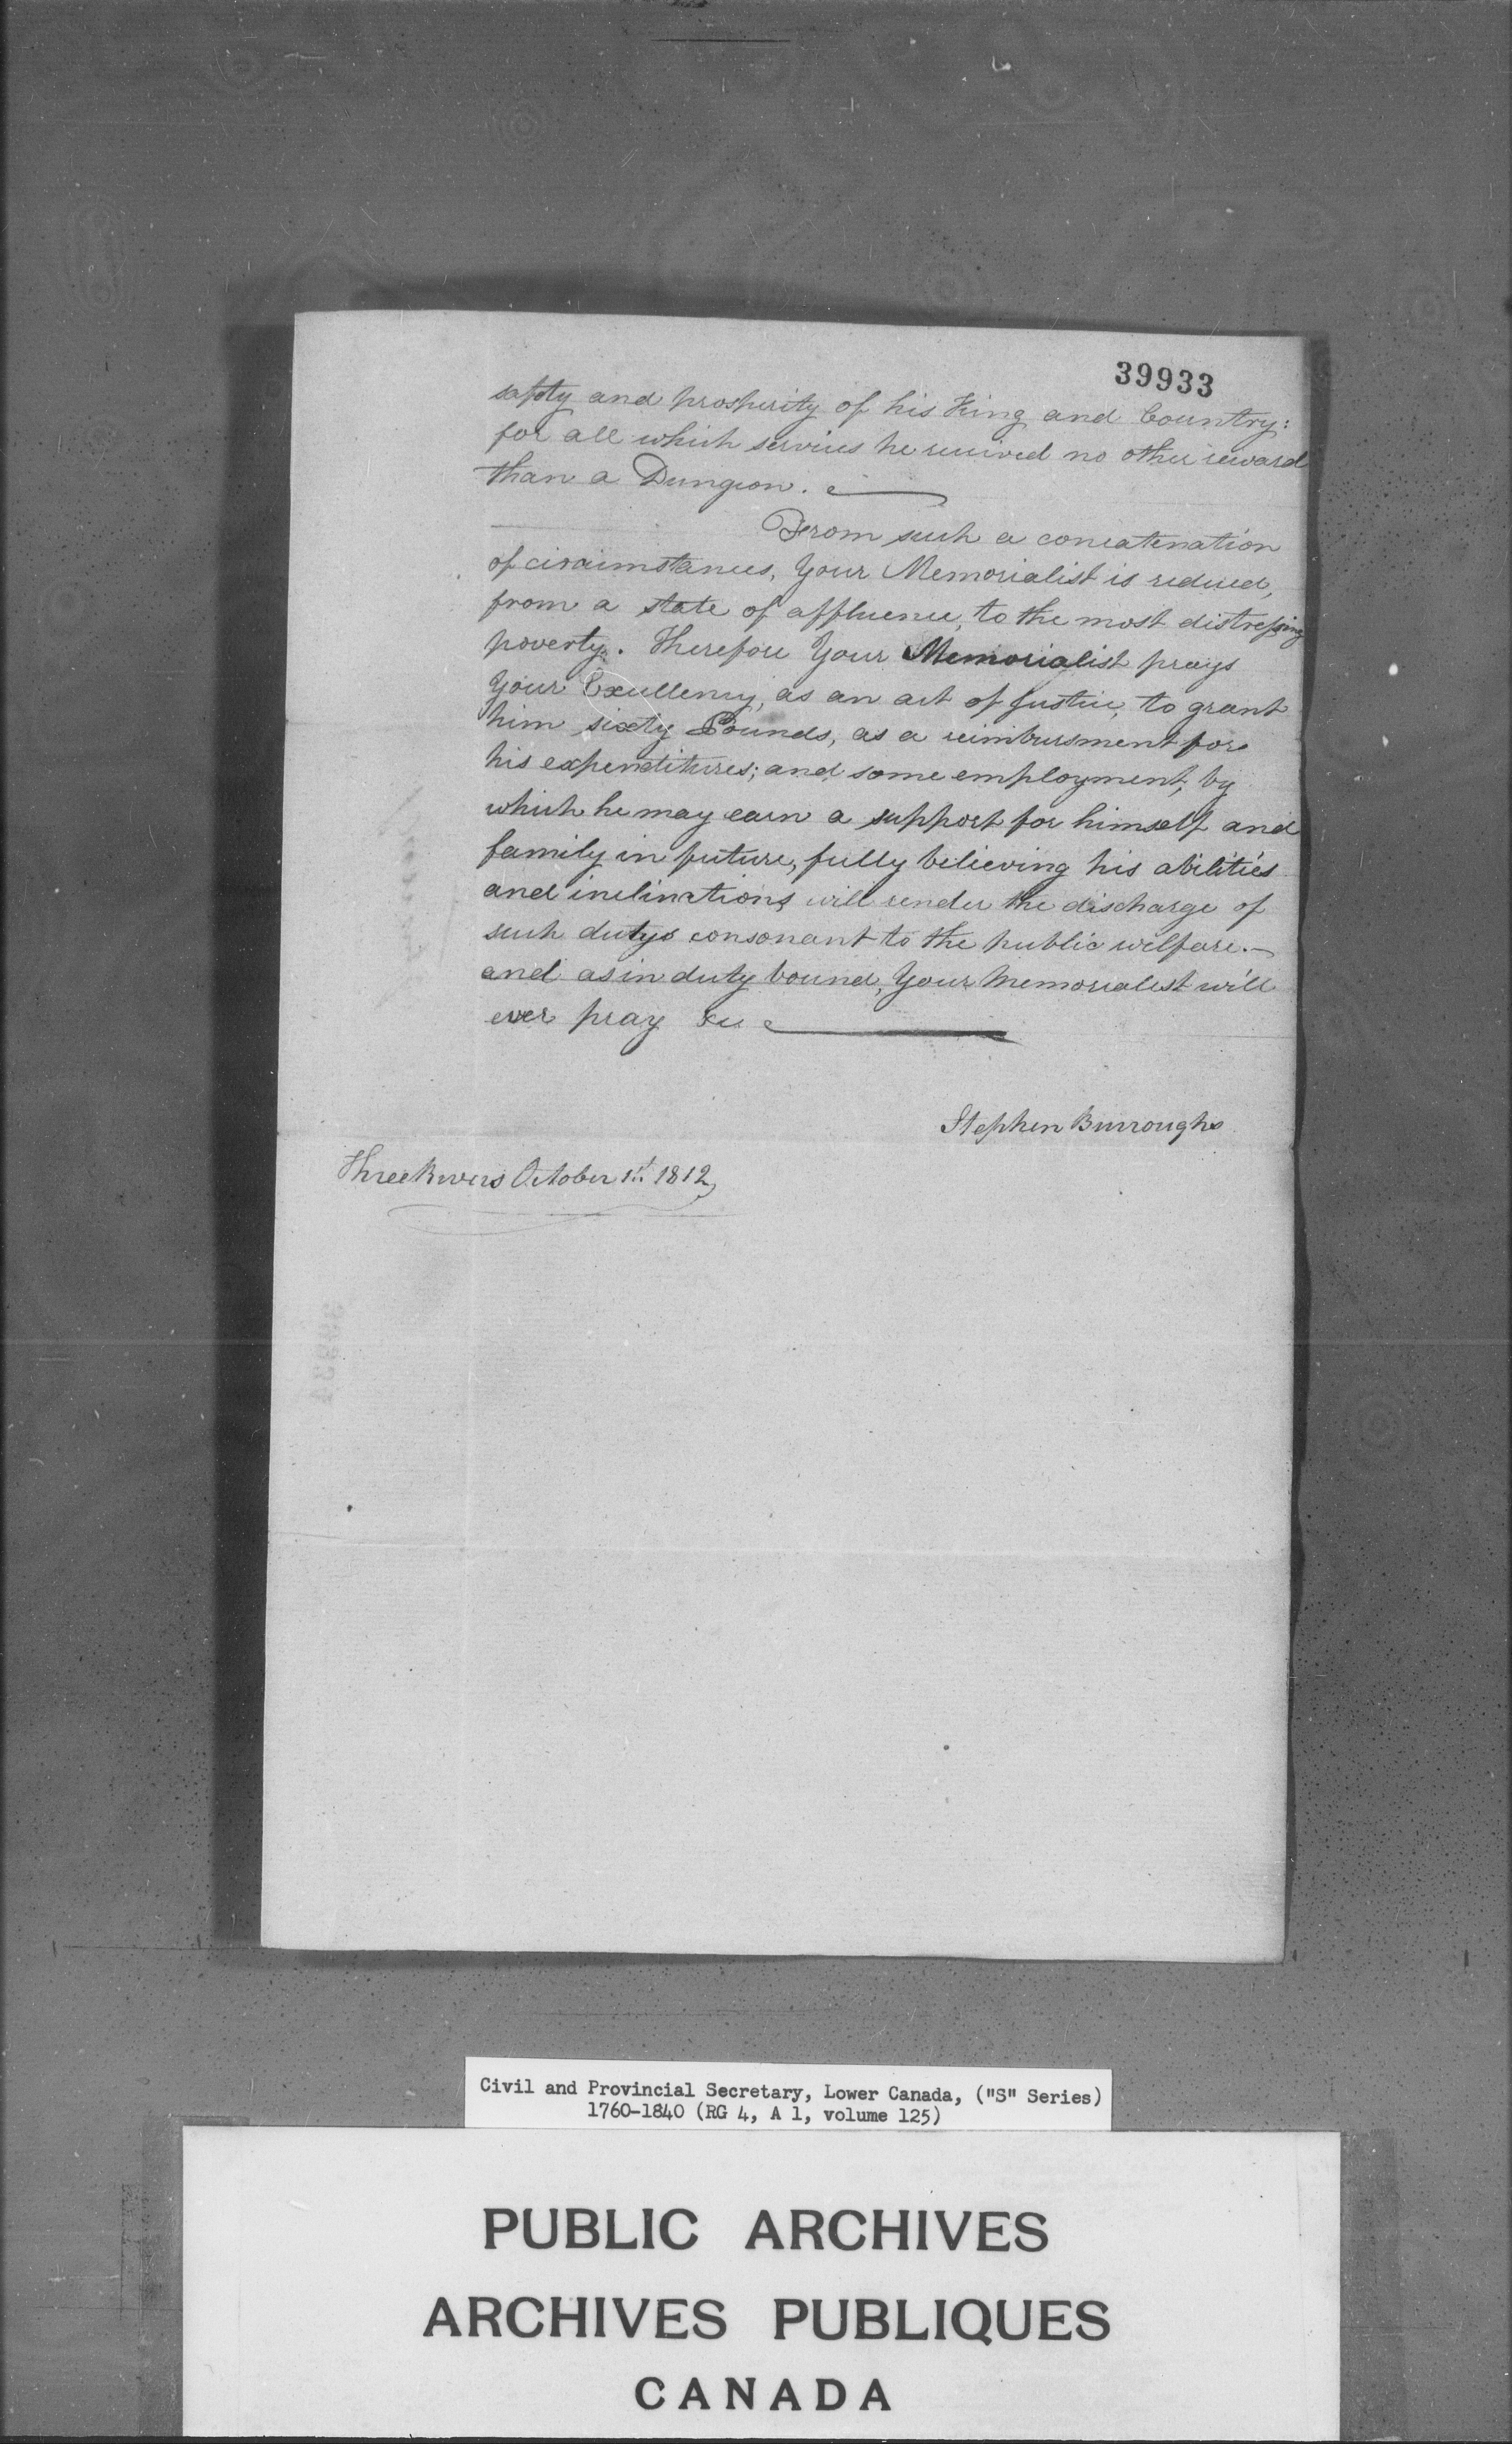 39933
safety and prosperity of his King and Country:
for all which services he received no other reward
than a Dungeon.
From such a concatenation
of circumstances, Your Memorialist is reduced,
from a state of affluence, to the most distressing
poverty. Therefore Your Memorialist prays
Your Excellency, as an act of Justice, to grant
him sixty Pounds, as a reimbursment for
his expenditures; and some employment, by
which he may earn a support for himself and
family in future, fully believing his abilities
and inclinations will render the discharge of
such dutys consonant to the public welfare.—
and as in duty bound, Your Memorialist will
ever pray &c
Stephen Burroughs
Three Rivers October 1st. 1812,
Civil and Provincial Secretary, Lower Canada, ("S" Series)
1760-1840 (RG 4, A 1, volume 125)
PUBLIC ARCHIVES
ARCHIVES PUBLIQUES
CANADA